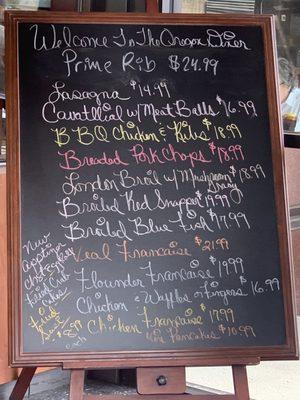 Welcome To The Oregon Diner
Prime Rib $24.99
Lasagna $14.99
Cavatlliai w/ Meat Balls $16.99
BBQ Chicken & Ribs $18.99
Breaded Pork Chops $18.99
London Broil w/ Mushroom Gravy $18.99
Broiled Red Snapper $19.99
Broiled Blue Fish $17.99
Veal Francaise $21.99
Flounder Francaise $19.99
Chicken & Waffles w/ Fingers $16.99
Chicken Francaise $17.99
Mini Pancakes $10.99
New
Appetizer
Fried Crab
Cakes
Fried
$8.99
each